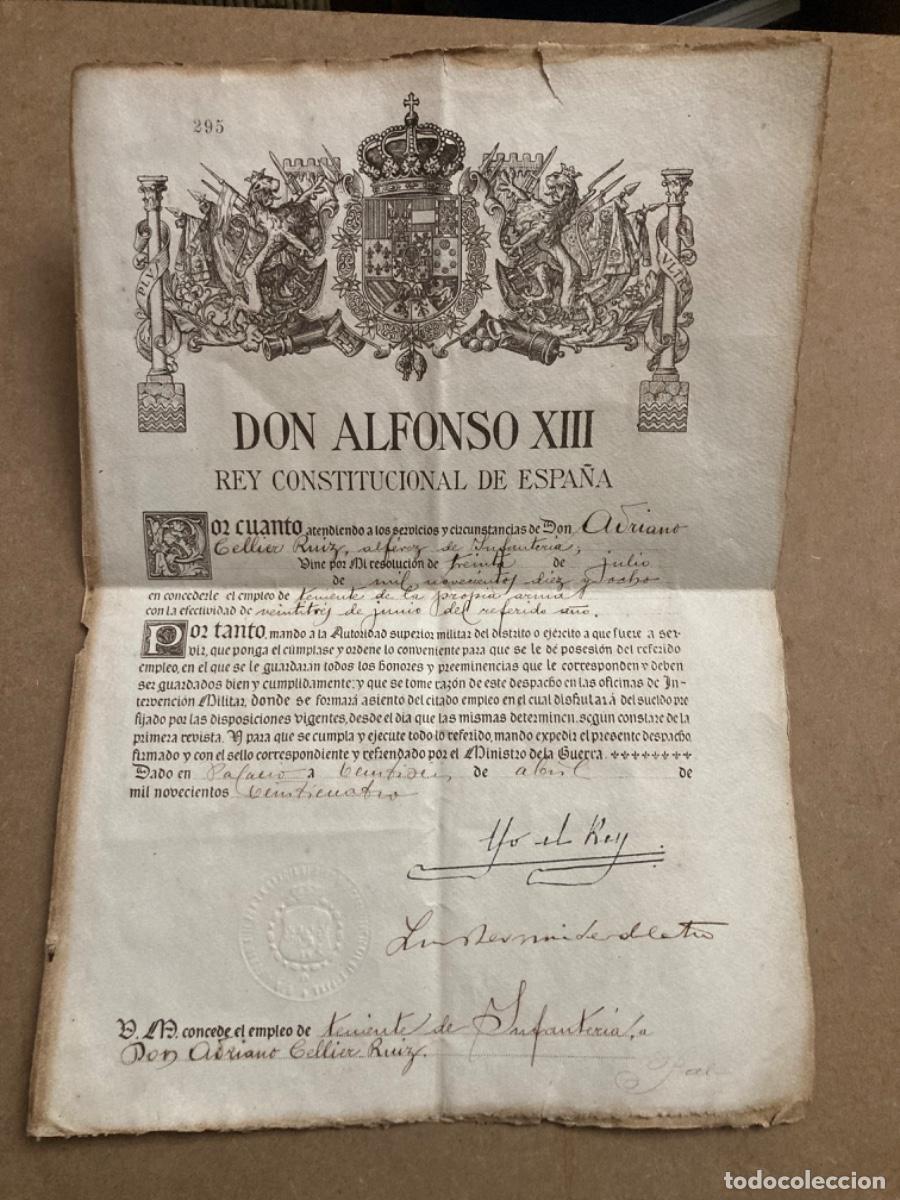 295
PLVS
VLTRA
DON ALFONSO XIII
REY CONSTITUCIONAL DE ESPAÑA
Por cuanto atendiendo a los servicios y circunstancias de Don Adriano
Cellier Ruiz, alférez de Infantería,
Vine por Mi resolución de treinta de julio
de mil novecientos diez y ocho
en concederle el empleo de teniente de la propia arma
con la efectividad de veintitrés de junio del referido año.
Por tanto, mando a la Autoridad superior militar del distrito o ejército a que fuere a ser-
vir, que ponga el cúmplase y ordene lo conveniente para que se le dé posesión del referido
empleo, en el que se le guardarán todos los honores y preeminencias que le corresponden y deben
ser guardados bien y cumplidamente; y que se tome razón de este despacho en las oficinas de In-
tervención Militar, donde se formará asiento del citado empleo en el cual disfrutará del sueldo pre
fijado por las disposiciones vigentes, desde el día que las mismas determinen, según constare de la
primera revista. Y para que se cumpla y ejecute todo lo referido, mando expedir el presente despacho
firmado y con el sello correspondiente y refrendado por el Ministro de la Guerra.
Dado en Palacio a de abril de
mil novecientos veinticuatro
Yo el Rey
V. M. concede el empleo de teniente de Infantería, a
Don Adriano Cellier Ruiz.
todocoleccion